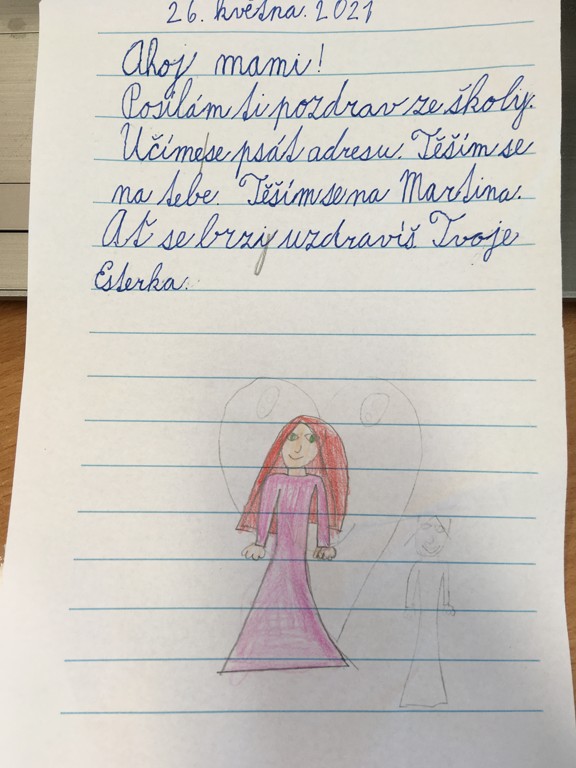 26. května. 2021
Ahoj mami!
Posílám ti pozdrav ze školy.
Učíme se psát adresu. Těším se
na tebe. Těším se na Martina.
Ať se brzy uzdravíš Tvoje
Esterka.